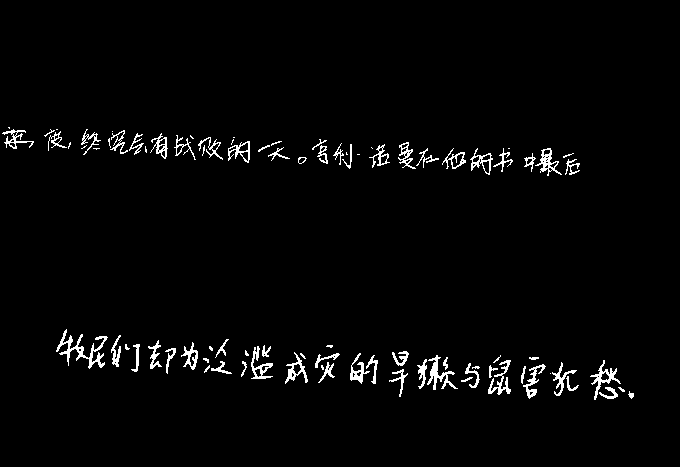 疲,终究会有战败的一天。亨利·诺曼在他的书中最后
牧民们却为泛滥成灾的旱獭与鼠害犯愁。